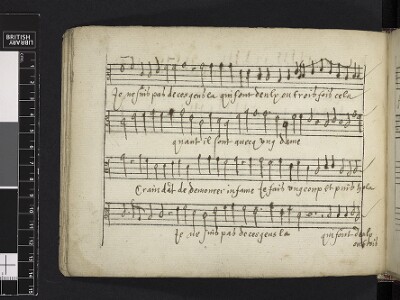 BRITISH
LIBRARY
Je ne suis pas de ces gens la qui font deulx ou trois fois cela
quant il sont avecq ung dame
Craindāt de demourer infame Je fais ung coup et puis hola
Je ne suis pas de ces gens la qui font deulx
ou trois